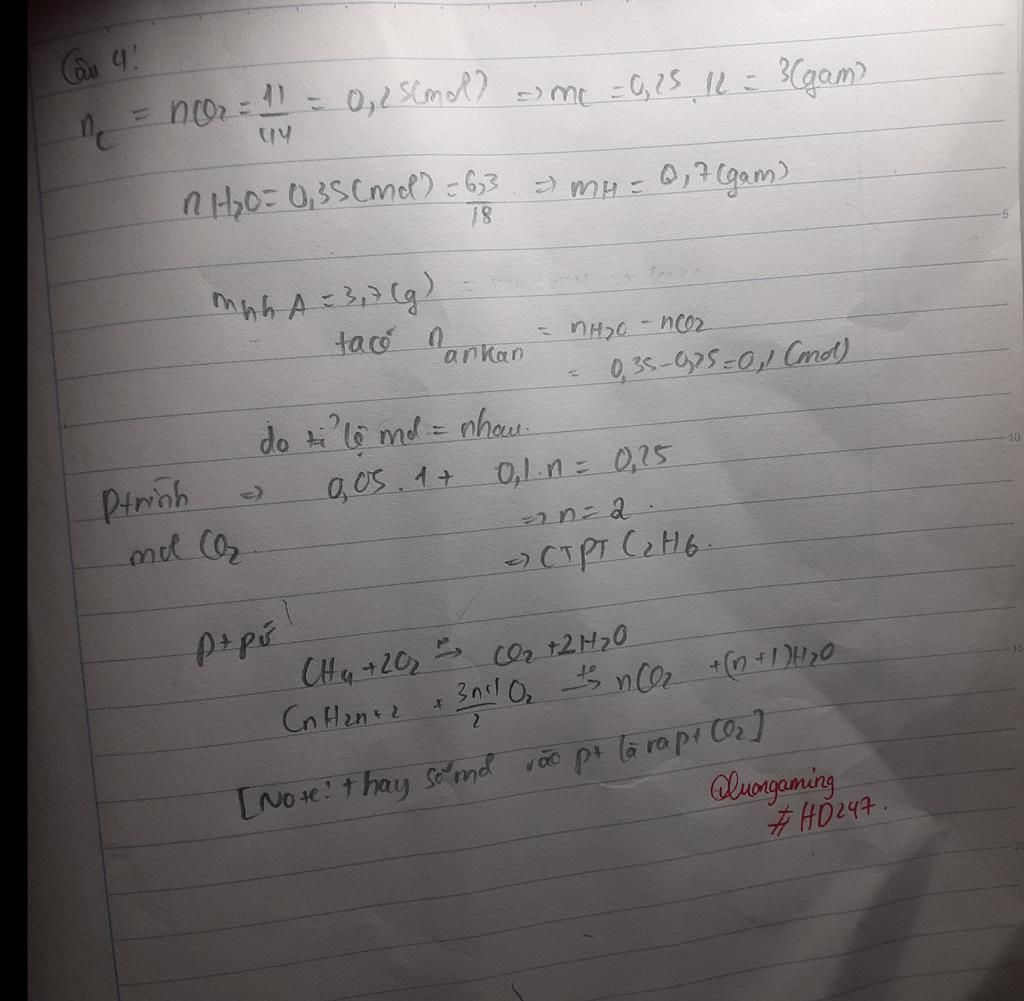 Câu 4:
n_C = nCO2 = 11/44 = 0,25(mol) => mC = 0,25 . 12 = 3(gam)
nH2O = 0,35(mol) = 6,3/18 => mH = 0,7(gam)
mhh A = 3,7(g)
ta có n ankan = nH2O - nCO2
= 0,35-0,25=0,1(mol)
do tỉ lệ mol = nhau.
Ptrình => 0,05.1 + 0,1.n = 0,25
mol CO2 => n = 2.
=> CTPT C2H6.
pt pứ
CH4 + 2O2 t° → CO2 + 2H2O
CnH2n+2 + 3n+1/2 O2 t° → nCO2 + (n+1)H2O
[Note: thay số mol vào pt là ra pt CO2]
@luongaming
#HD247.
5
10
15